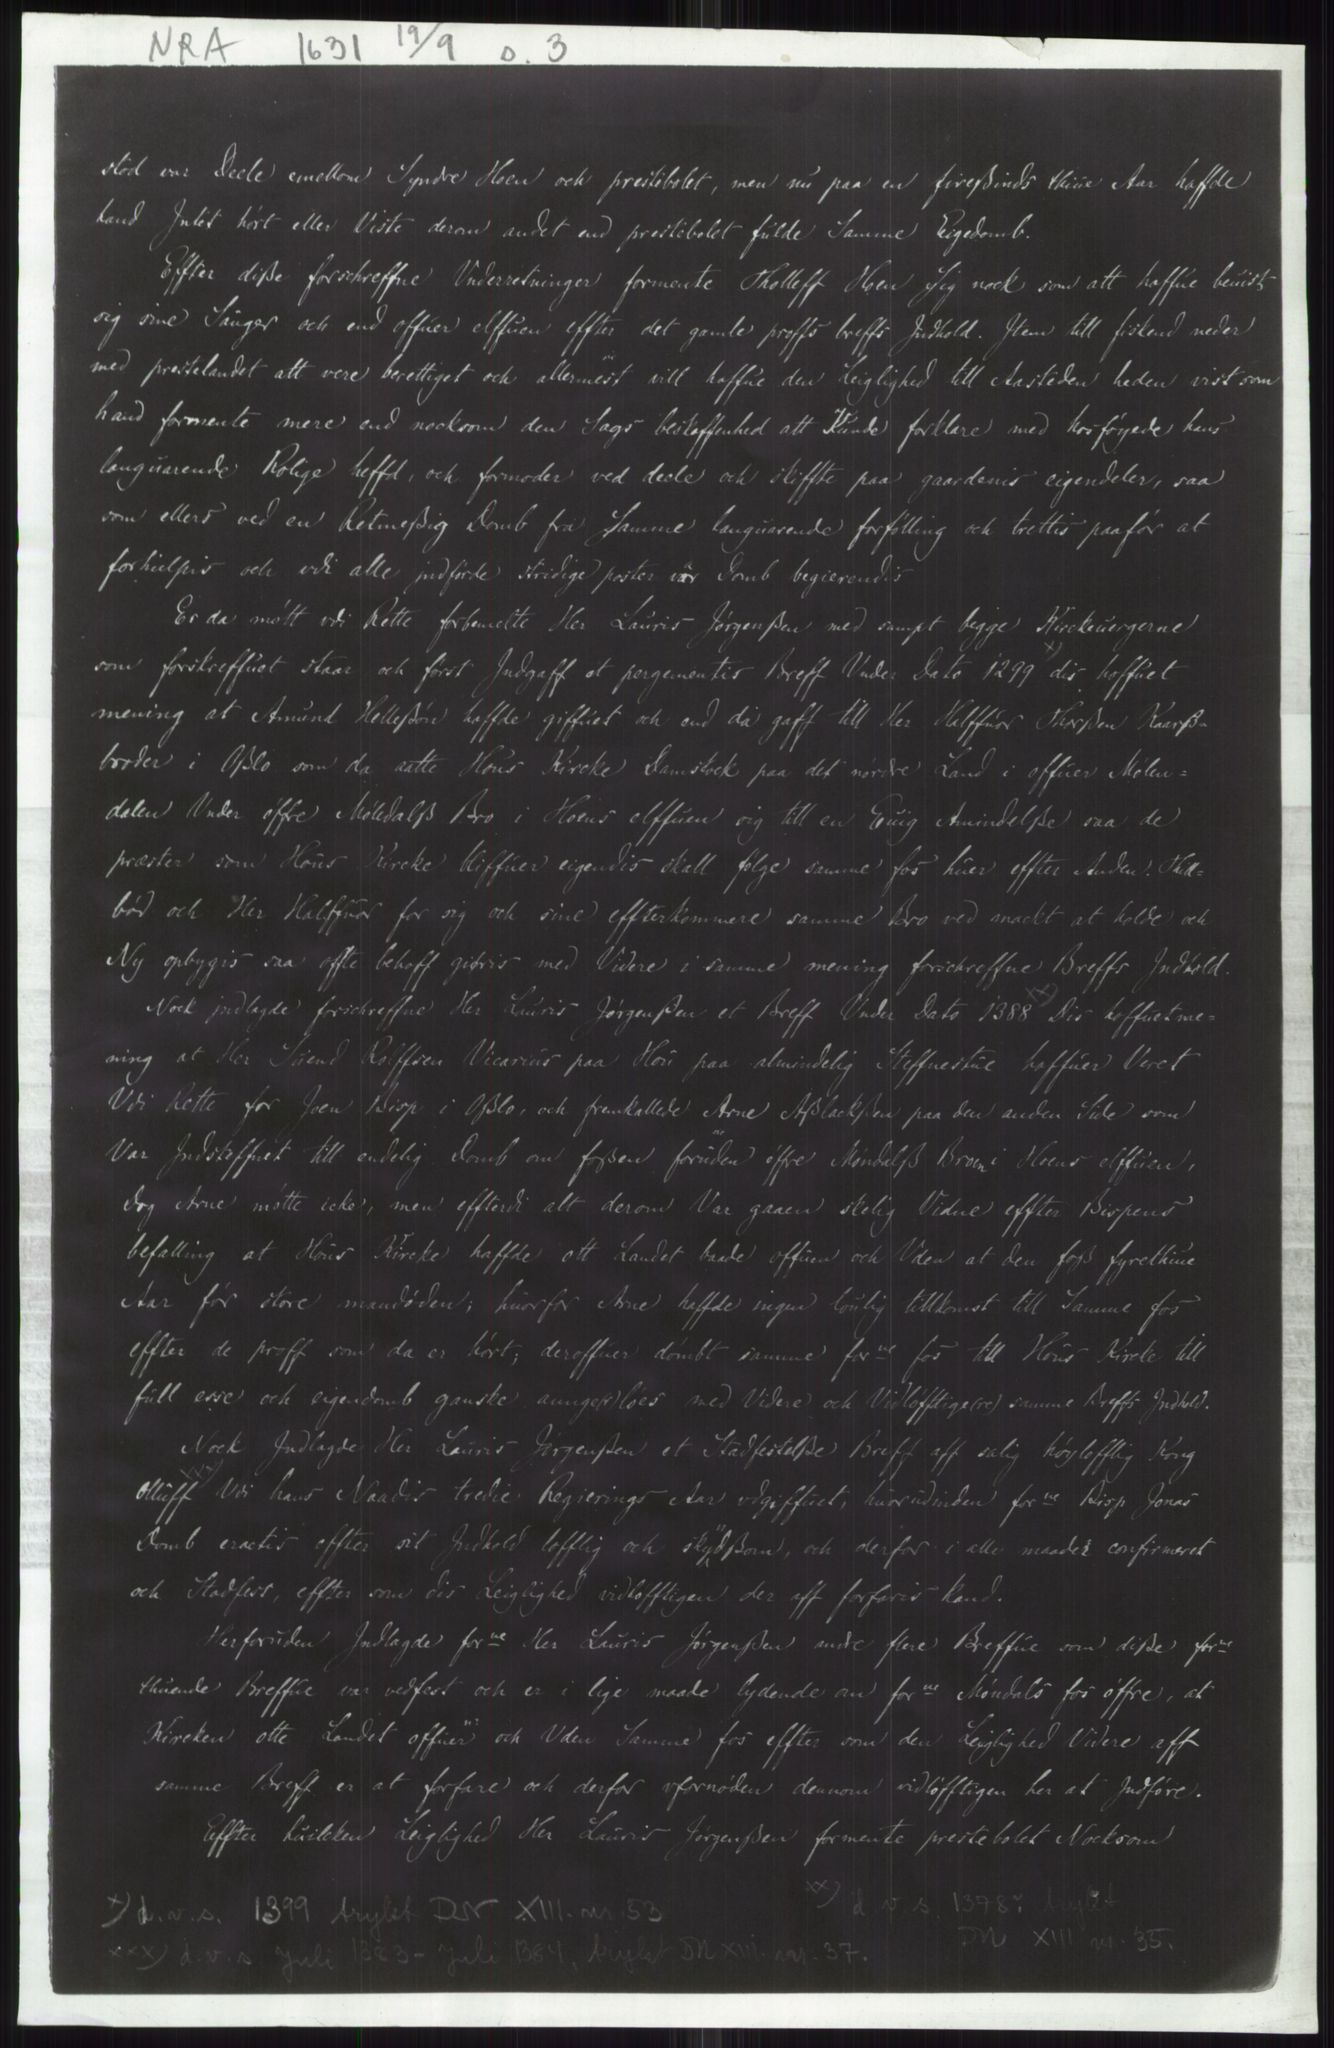 NRA 1631 19/9 s. 3
stöd var Deele emellom Syndre Hoen och prestebolet, men nu paa en firesßinds thiue Aar haffde
hand Intet hört eller Viste derom andet end prestebolet fulde Samme Eigedomb.
Effter diße forschreffne Underretninger formente Tholleff Hoen Sig nock som att haffue beuist
sig sine Sauger och end offuer elffuen effter det gamle proffs breffs Indhold. Item till fiskend neder
med prestelandet att vere berettiget och allermest vill haffue den Leiglighed till Aasteden heden vist som
hand formente mere end nocksom den Sags beskaffenhed att Kunde forklare med hosföyede hans
languarende Rolige heffd, och formoder ved deele och skiffte paa gaardenis eigendeler, saa
som ellers ved en Retmeßig Domb fra Samme languarende forfölling och trettis paaför at
forhielpis och vdi alle indförde stridige poster vor Domb begierendis
Er da mött vdi Rette forbemelte Her Lauris Jörgenßen med sampt begge Kirckeuergerne
som forskreffuet staar och först Indgaff et pergementis Breff Under Dato 1299 x) dis hoffuet
mening at Amund Helleßön haffde giffuet och end da gaff till Her Halffuor Thorßen Kaarß-
broder i Oßlo som da aatte Hous Kircke Damstock paa det nordre Land i offuer Mölen=
dalen Under öffre Möledalß Bro i Hoens elffuen og till en Euig Amindelße saa de
præster som Hous Kircke bliffuer eigendis skall fölge samme fos huer effter Anden. Skill=
böd och Her Halffuor for sig och sine effterkommere samme Bro ved mackt at holde och
Ny opbygis saa offte behoff giöris med Videre i samme mening forschreffne Breffs Indhold.
Nock indlagde forschreffne Her Lauris Jörgenßen et Breff Under Dato 1388 xx) Dis hoffuetme=
ning at Her Suend Rolffsen Vicarius paa Hou paa almindelig Steffnestue haffuer Veret
Vdi Rette for Joen Bisp i Oßlo, och fremkallede Arne Aßlackßen paa den anden Side som
Var Indsteffnet till endelig Domb om foßen foruden öffre Möndalß Broen i Hoens elffuen,
Dog Arne mötte icke, men effterdi att derom Var gaaen skelig Vidne effter Bispens
befalling at Hous Kircke haffde ott Landet baade offuen och Uden at den foß fyrethiue
Aar för store mandöden; huorfor Arne haffde ingen louglig tillkomst till Samme fos
effter de proff som da er hört; deroffuer dömbt samme forne fos till Hous Kircke till
full esse och eigendomb ganske aange(r)loes med Videre och Vidlöfftige(re) samme Breffs Indhold.
Nock Indlagde Her Lauris Jörgenßen et Stadfestelße Breff aff salig höylofflig Kong
Olluff xxx) Vdi hans Naadis tredie Regierings Aar vdgiffuet, huorudinden forne Bisp Jonas
Domb eractis effter sit Indhold lofflig och skydßom, och derfor i alle maader confirmeret
och Stadfest, effter som dis Leiglighed vidlöfftigen der aff forfaris kand.
Herforuden Indlagde forne Her Lauris Jörgenßen andre flere Breffue som diße forne
thuende Breffue var vedfest och er i lige maade lydende om forne Möndals fos öffre, at
Kircken otte Landet offuen och Uden Samme fos effter som den Leiglighed Videre aff
samme Breff er at forfare och derfor vfornöden dennom vidlöfftigen her at Indföre.
Effter huilcken Leiglighed Her Lauris Jörgenßen formente prestebolet Nocksom
x) d.v.s. 1399 trykt DN XIII nr. 53
xx) d.v.s. 1378, trykt
DN XIII nr. 35.
xxx) d.v.s. Juli 1383 - Juli 1384, trykt DN XIII nr. 37.